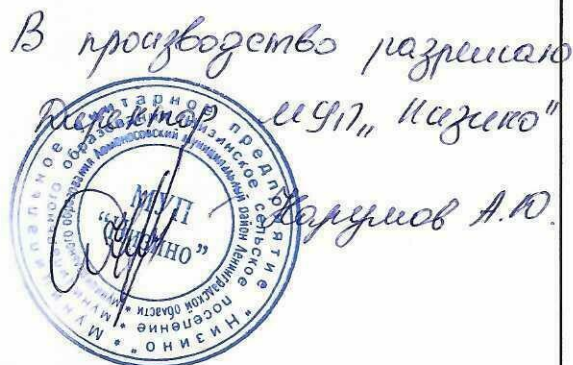 В производство разрешаю
Директор МУП „Низино"
Карумов А.Ю.
* Муниципальное унитарное предприятие "Низино" *
муниципального образования Низинское сельское поселение *
муниципального образования Ломоносовский муниципальный район Ленинградской области *
МУП
“Низино”